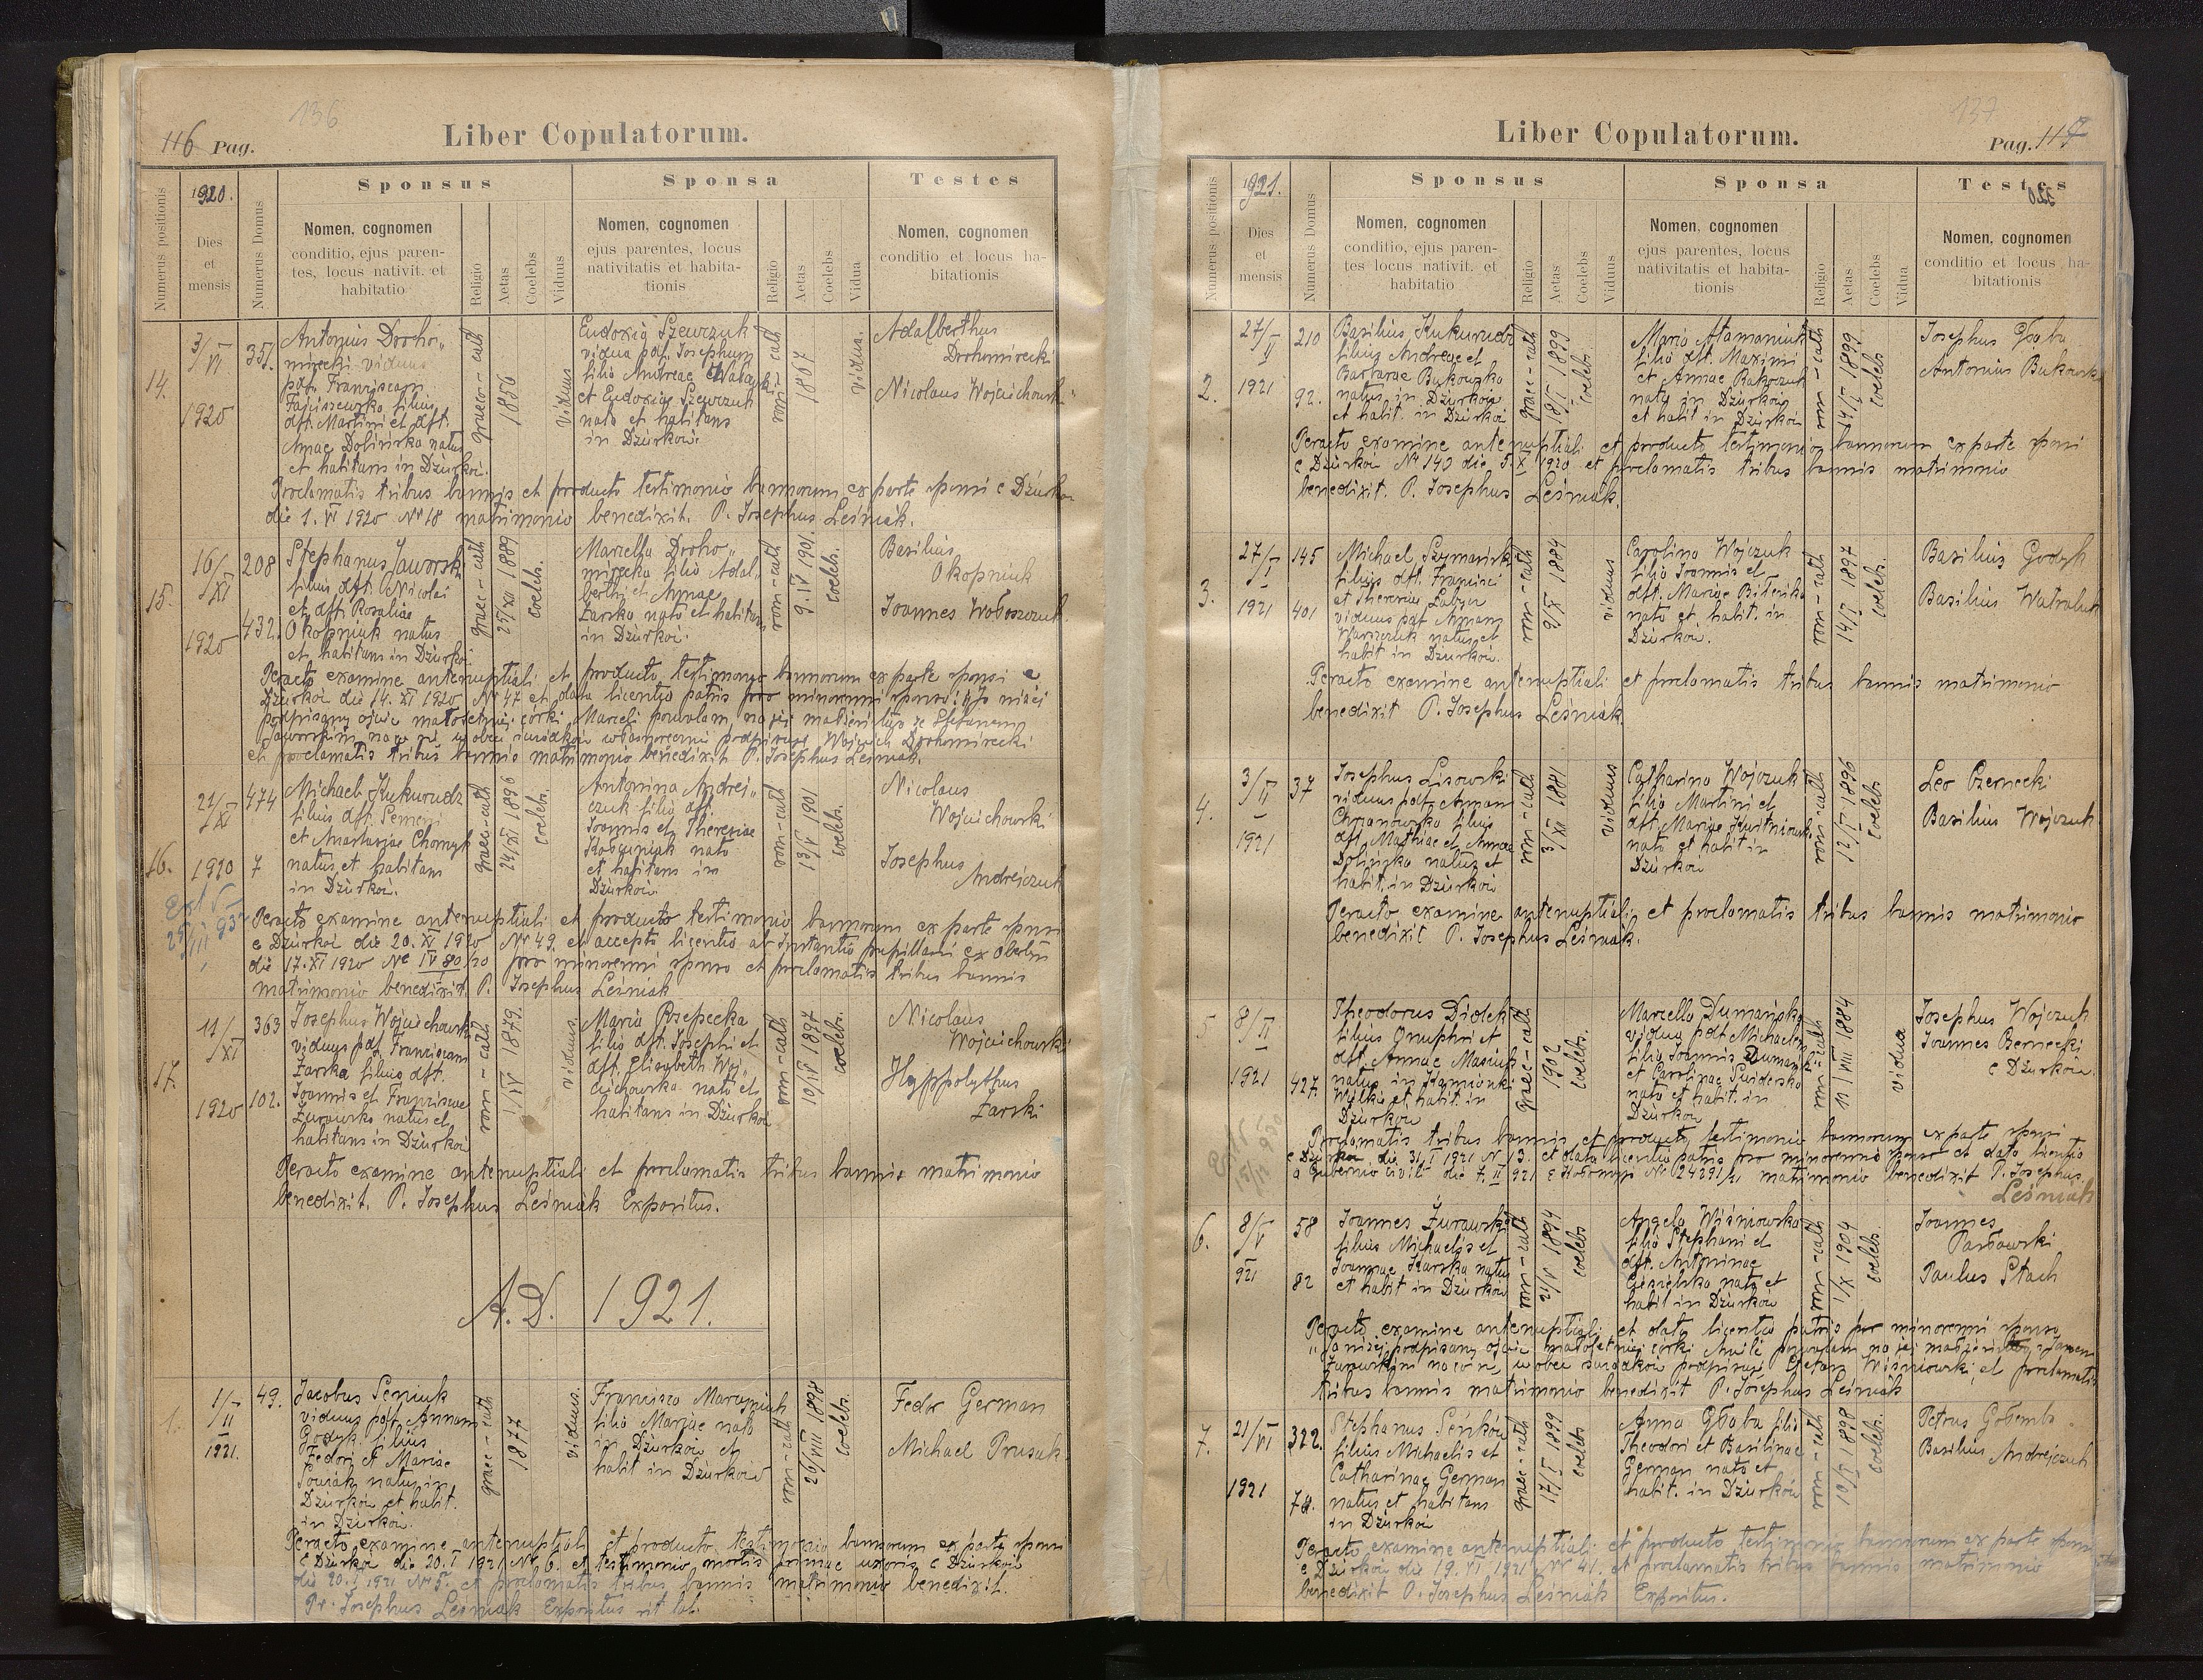 136
116 Pag.
Liber Copulatorum.
Numerus positionis
1920.
Dies
et
mensis
Numerus Domus
Sponsus
Nomen, cognomen
conditio, ejus paren-
tes, locus nativit. et
habitatio
Religio
Aetas
Coelebs
Viduus
Sponsa
Nomen, cognomen
ejus parentes, locus
nativitatis et habita-
tionis
Religio
Aetas
Coelebs
Vidua
Testes
Nomen, cognomen
conditio et locus ha-
bitationis
14.
3/VI
1920
351.
Antonius Droho„
mirecki viduus
pdf. Franciscam
filius
dft. Martini et dft.
Annae Dolińska natus
et habitans in Dżurków.
graeco-cath
1856
viduus
Eudoxia Szewczuk
vidua pdf. Josephum
filia Andreae
et Eudoxiae Szewczuk
nata et habitans
in Dżurków.
rom-cath
1867
vidua.
Adalberthus
Drohomirecki
Nicolaus Wojciechowski
Proclamatis tribus bannis et producto testimonio bannorum ex parte sponsi e Dżurków
die 1. VI 1920 Nr 18 matrimonio benedixit. P. Josephus Leśniak.
15.
16/XI
1920
208
432.
Stephanus Jaworski
filius dft. Nicolai
et dft. Rosaliae
Okopniuk natus
et habitans in Dżurków.
graec-cath
25/XII 1889
coelebs.
Marcella Droho„
mirecka filia Adal„
berthi et Annae
Żarska nata et habitans
in Dżurków.
rom-cath
9. IV 1901.
coelebs.
Basilius
Okopniuk
Joannes Wołoszczuk.
Peracto examine antenuptiali et producto testimonio bannorum ex parte sponsi e
Dżurków die 14. XI 1920 Nr 47 et data licentia patris pro minorenni sponsa: „Ja niżej
podpisany ojciec małoletniej córki Marceli pozwalam na jej małżeństwo ze Stefanem
Jaworskim na co się wobec świadków własnoręcznie podpisuję Wojciech Drohomirecki
et proclamatis tribus bannis matrimonio benedixit P. Josephus Leśniak.
16.
21/XI
1920
474
7
Michael Kukurudz
filius dft. Semeni
et Anastasiae Chomyk
natus et habitans
in Dżurków.
graec-cath
24/XI 1896
coelebs.
Antonina Andrej„
czuk filia dft.
Joannis et Theresiae
nata
et habitans in
Dżurków
rom-cath
13/V 1901
coelebs.
Nicolaus
Wojciechowski
Josephus
Andrejczuk
Peracto examine antenuptiali et producto testimonio bannorum ex parte sponsi
e Dżurków die 20. XI 1920 Nr 49. et accepta licentia ab Instantia pupillari ex Obertyn
die 17. XI 1920 Nr IV 80/20 pro minorenni sponsa et proclamatis tribus bannis
matrimonio benedixit. P. Josephus Leśniak
17.
11/XI
1920
363
102.
Josephus Wojciechowski
viduus pdf. Franciscam
Żarska filius dft.
Joannis et Franciscae
Żurawska natus et
habitans in Dżurków
rom-cath
1/IV 1879.
viduus.
Maria Rzepecka
filia dft. Josephi et
dft. Elisabeth Woj„
ciechowska nata et
habitans in Dżurków
rom-cath
10/IV 1897
coelebs.
Nicolaus
Wojciechowski
Hyppolythus
Żarski
Peracto examine antenuptiali et proclamatis tribus bannis matrimonio
benedixit. P. Josephus Leśniak Expositus.
A.D. 1921.
1.
1/II
1921.
49.
Jacobus Seniuk
viduus pdf. Annam
Godyk filius
Fedori et Mariae
natus in
Dżurków et habit.
in Dżurków.
graec-cath
1877
viduus.
Francisca Marcyniuk
filia Mariae nata
in Dżurków et
habit in Dżurków
rom-cath
26/VIII 1898
coelebs.
Fedor German
Michael Prusak.
Peracto examine antenuptiali et producto testimonio bannorum ex parte sponsi
e Dżurków die 20. I 1921 Nr 6. et testimonio mortis primae uxoris e Dżurków
die 20. I 1921 Nr 5. et proclamatis tribus bannis matrimonio benedixit.
Pr. Josephus Leśniak Expositus rit lat.
137
Liber Copulatorum.
Pag. 117
Numerus positionis
1921.
Dies
et
mensis
Numerus Domus
Sponsus
Nomen, cognomen
conditio, ejus paren-
tes locus nativit. et
habitatio
Religio
Aetas
Coelebs
Viduus
Sponsa
Nomen, cognomen
ejus parentes, locus
nativitatis et habita-
tionis
Religio
Aetas
Coelebs
Vidua
Testes
Nomen, cognomen
conditio et locus ha-
bitationis
2.
27/II
1921
210
92.
Basilius Kukurudz
filius Andreae et
Barbarae Bukowska
natus in Dżurków
et habit. in Dżurków
graec-cath
18/I 1899
coelebs.
Maria Atamaniuk
filia dft. Maximi
et Annae
nata in Dżurków
et habit in Dżurków
rom-cath
14/I 1899
coelebs
Josephus Głąba
Antonius Bukowski
Peracto examine antenuptiali et producto testimonio bannorum ex parte sponsi
e Dżurków Nr 140 die 5. X 1920 et proclamatis tribus bannis matrimonio
benedixit. P. Josephus Leśniak.
3.
27/I
1921
145
401
Michael Szymański
filius dft. Francisci
et Theresiae
viduus pdf Annam
natus et
habit in Dżurków.
rom-cath
9/XI 1884
viduus
Carolina Wojczuk
filia Joannis et
dft. Mariae
nata et habit. in
Dżurków.
rom-cath
14/I 1897
coelebs.
Basilius Godyk
Basilius Watraluk
Peracto examine antenuptiali et proclamatis tribus bannis matrimonio
benedixit P. Josephus Leśniak.
4.
3/II
1921
37
Josephus Lisowski
viduus pdf. Annam
Chrzanowska filius
dft. Mathiae et Annae
Dolińska natus et
habit. in Dżurków
rom-cath
3/XII 1881
viduus
Catharina Wojczuk
filia Martini et
dft. Mariae Kwitniowska
nata et habit in
Dżurków
rom-cath
12/I 1896
coelebs
Leo Czernecki
Basilius Wojczuk
Peracto examine antenuptiali et proclamatis tribus bannis matrimonio
benedixit P. Josephus Leśniak.
5.
8/II
1921
427.
Theodorus Didek
filius Onuphri et
dft. Annae
natus in Kamionki
Wilki et habit. in
Dżurków
graec-cath
1902
coelebs.
Marcella Dumańska
vidua pdf. Michaelem
filia Joannis Dumański
et Carolinae Świderska
nata et habit. in
Dżurków
rom-cath
VIII 1884
vidua
Josephus Wojczuk
Joannes Bernecki
e Dżurków.
Proclamatis tribus bannis et producto testimonio bannorum ex parte sponsi
e Dżurków die 31. I 1921 Nr 13. et data licentia patris pro minorenni sponso et data licentia
a Gubernio civili die 7. II 921 e Kołomyja Nr 24291/21 matrimonio benedixit P. Josephus
Leśniak
6.
8/V
921
58
82
Joannes Żurawski
filius Michaelis et
Joannae natus
et habit in Dżurków
rom-cath
21/V 1894
coelebs
Angela Wiśniowska
filia Stephani et
dft. Antoninae
nata et
habit in Dżurków
rom-cath
1/X 1904
coelebs.
Joannes
Pawłowski
Paulus Stach
Peracto examine antenuptiali et data licentia patris pro minorenni sponsa
„Ja niżej podpisany ojciec małoletniej córki Anieli pozwalam na jej małżeństwo z Janem
Żurawskim na co się wobec świadków podpisuję Stefan Wiśniowski, et proclamatis
tribus bannis matrimonio benedixit P. Josephus Leśniak
7.
21/VI
1921
322.
78.
Stephanus Seńków
filius Michaelis et
Catharinae German
natus et habitans
in Dżurków
graec-cath
17/I 1899
coelebs
Anna Głąba filia
Theodori et Basilinae
German nata et
habit. in Dżurków
rom-cath
10/I 1898
coelebs.
Petrus Gołemba
Basilius Andrejczuk
Peracto examine antenuptiali et producto testimonio bannorum ex parte sponsi
e Dżurków die 19. VI 1921 Nr 41. et proclamatis tribus bannis matrimonio
benedixit P. Josephus Leśniak Expositus.